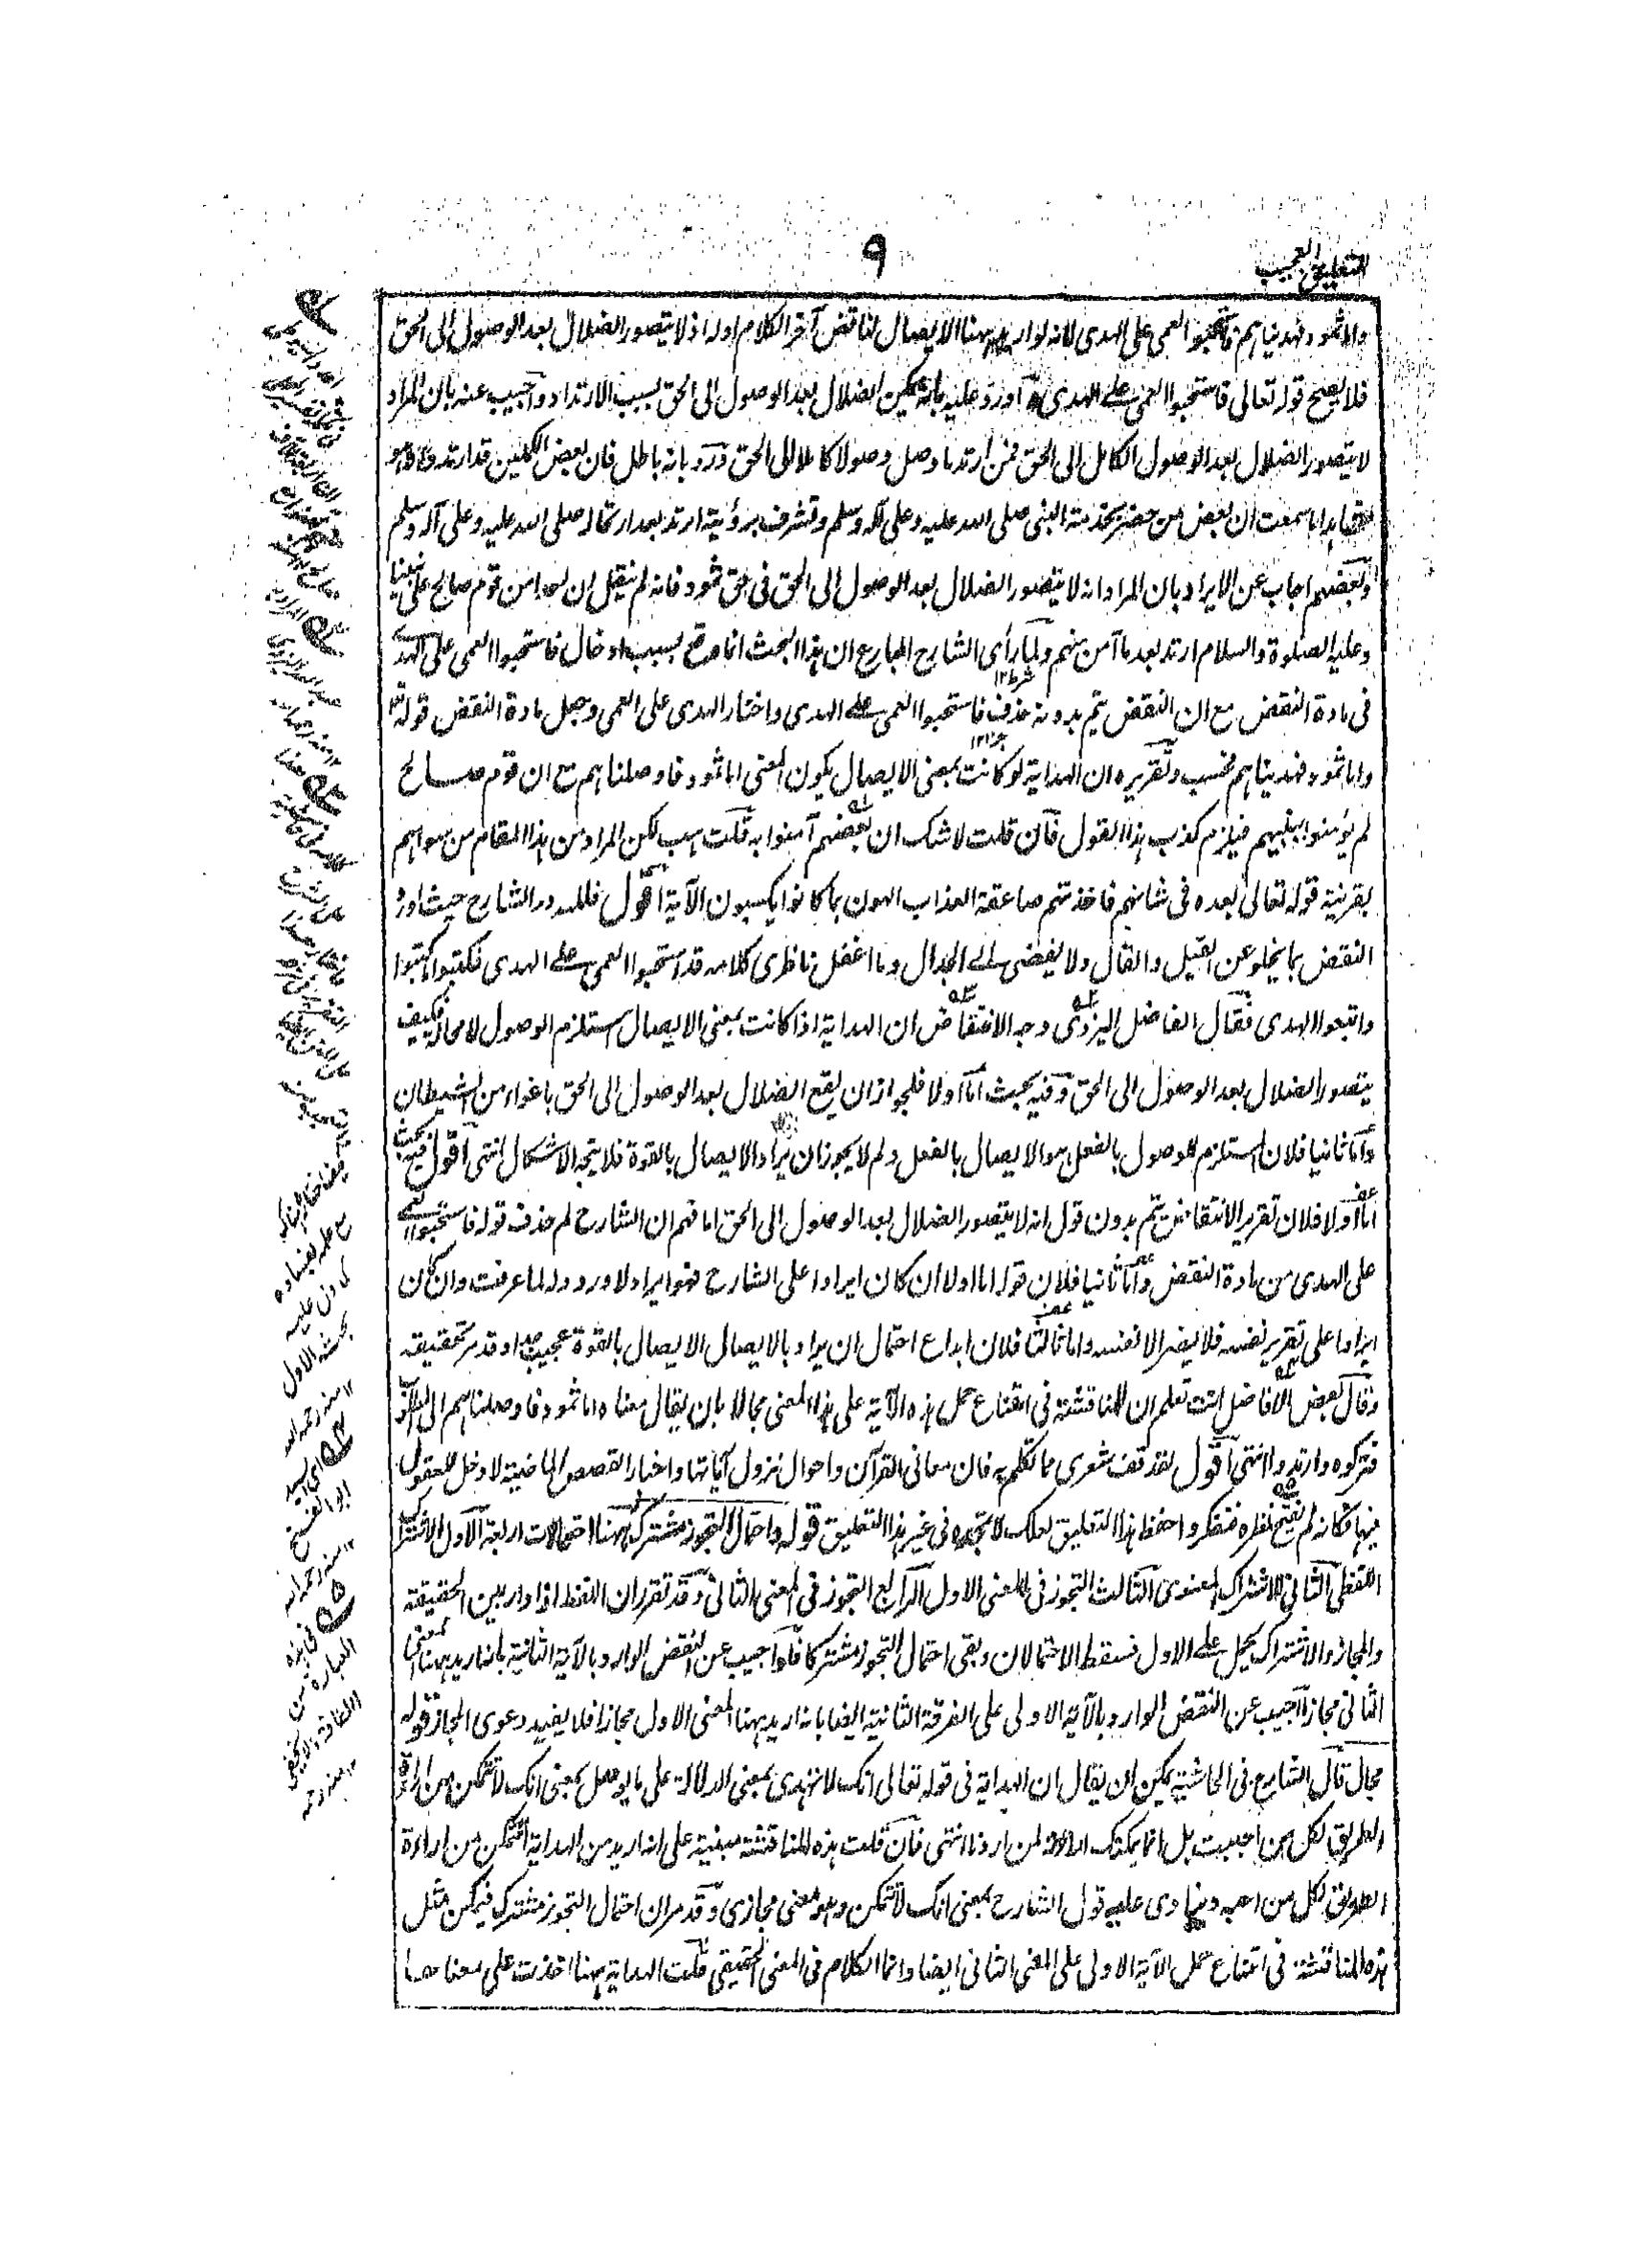 التعليق العجيب
٩
واما ثمود فهديناهم فاستحبوا العمى على الهدى لانه لو اريد ههنا الايصال لناقض آخر الكلام اوله اذ لا يتصور الضلال بعد الوصول الى الحق
فلا يصح قوله تعالى فاستحبوا العمى على الهدى واورد عليه بانه يمكن الضلال بعد الوصول الى الحق بسبب الارتداد واجيب عنه بان المراد
لا يتصور الضلال بعد الوصول الكامل الى الحق فمن ارتد ما وصل وصولا كاملا الى الحق ورد بانه باطل فان بعض الكملين قد ارتدوا
اما سمعت ان بعض من حضر بخدمة النبي صلى الله عليه وعلى آله وسلم وتشرف برؤيته ارتد بعد ارتحاله صلى الله عليه وعلى آله وسلم
وبعضهم اجاب عن الايراد بان المراد انه لا يتصور الضلال بعد الوصول الى الحق في حق ثمود فانه لم ينقل ان احدا من قوم صالح على نبينا
وعليه الصلوة والسلام ارتد بعد ما آمن منهم ولما رأى الشارح البارع ان هذا البحث انما وقع بسبب ادخال فاستحبوا العمى على الهدى
في مادة النقض مع ان النقض يتم بدونه حذف فاستحبوا العمى على الهدى واختار الهدى على العمى وجعل مادة النقض قوله تع
واما ثمود فهديناهم فحسب وتقريره ان الهداية لو كانت بمعنى الايصال يكون المعنى اما ثمود فاوصلناهم مع ان قوم صالح
لم يؤمنوا بنبيهم فيلزم كذب هذا القول فان قلت لا شك ان بعضهم آمنوا به قلت هب لكن المراد من هذا المقام من سواهم
بقرينة قوله تعالى بعده في شانهم فاخذتهم صاعقة العذاب الهون بما كانوا يكسبون الآية اقول فلله در الشارح حيث اورد
النقض بما يخلو عن القيل والقال ولا يفضى الى الجدال وما اغفل ناظرى كلامه قد استحبوا العمى على الهدى فكتبوا ما كتبوا
واتبعوا الهدى فقال الفاضل اليزدى وجه الانتقاض ان الهداية اذا كانت بمعنى الايصال استلزم الوصول لا محالة فكيف
يتصور الضلال بعد الوصول الى الحق وفيه بحث اما اولا فلجواز ان يقع الضلال بعد الوصول الى الحق باغواء من الشيطان
واما ثانيا فلان المستلزم للوصول بالفعل هو الايصال بالفعل ولم لا يجوز ان يراد الايصال بالقوة فلا يتجه الاشكال انتهى اقول فيه بحث
اما اولا فلان تقرير الانتقاض يتم بدون قول انه لا يتصور الضلال بعد الوصول الى الحق اما فهم ان الشارح لم حذف قوله فاستحبوا العمى
على الهدى من مادة النقض واما ثانيا فلان قوله اما اولا ان كان ايرادا على الشارح فهو ايراد لا ورود له لما عرفت وان كان
ايرادا على تقرير نفسه فلا يضر الا نفسه واما ثالثا فلان ابداع احتمال ان يراد بالايصال الايصال بالقوة عجيب جدا وقد مر تحقيقه
وقال بعض الافاضل انت تعلم ان للمناقشة في امتناع حمل هذه الآية على هذا المعنى مجالا بان يقال معناه اما ثمود فاوصلناهم الى
فتركوه وارتدوا انتهى اقول لقد قف شعرى مما تكلم به فان معانى القرآن واحوال نزول آياتها واخبار القصص الماضية لا دخل للعقول
فيها فكانه لم يفتح نظره فتفكر واحفظ هذا التعليق لعلك لا تجده في غير هذا التعليق قوله واحتمال التجوز مشترك ههنا احتمالات اربعة الاول الاشتراك
اللفظى الثانى الاشتراك المعنوى الثالث التجوز في المعنى الاول الرابع التجوز في المعنى الثانى وقد تقرر ان اللفظ اذا دار بين الحقيقة
والمجاز والاشتراك يحمل على الاول فسقط الاحتمالان وبقى احتمال التجوز مشتركا فلو اجيب عن النقض الوارد بالآية الثانية بانه اريد ههنا المعنى
الثانى مجازا اجيب عن النقض الوارد بالآية الاولى على الفرقة الثانية ايضا بانه اريد ههنا المعنى الاول مجازا فلا يفيد دعوى المجاز قوله
مجال قال الشارح في الحاشية يمكن ان يقال ان الهداية في قوله تعالى انك لا تهدى بمعنى الدلالة على ما يوصل بمعنى انك لا تتمكن من اراءة
الطريق لكل من احببت بل انما يمكنك اراءته لمن اردنا انتهى فان قلت هذه المناقشة مبنية على انه اريد من الهداية التمكن من اراءة
الطريق لكل من احبه وينادى عليه قول الشارح بمعنى انك لا تتمكن وهو معنى مجازى وقد مر ان احتمال التجوز مشترك فيمكن مثل
هذه المناقشة في امتناع حمل الآية الاولى على المعنى الثانى ايضا وانما الكلام في المعنى الحقيقي قلت الهداية ههنا اخذت على معناها
مع علمه بفساده
كما دل عليه
بحثه الاول
١٢ منه رحمه الله
اى السيد
ابو الفتح
١٢ منه رحمه الله
في هذه
العبارة من
اللطافة ما لا يخفى
١٢ منه رحمه